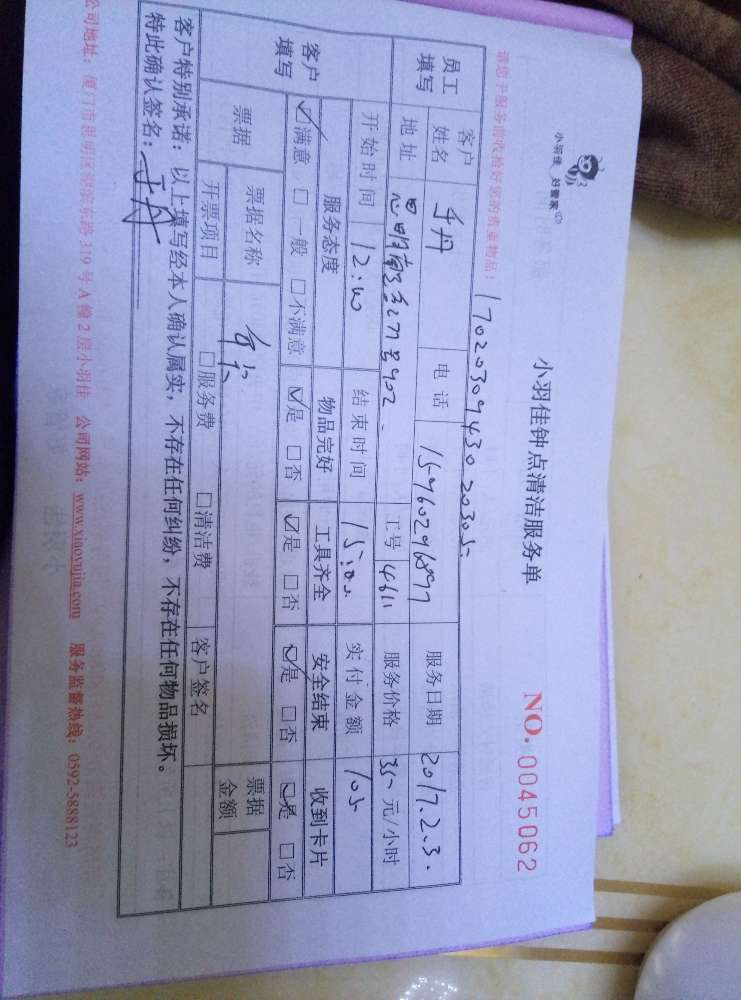 小羽佳 好管家
小羽佳钟点清洁服务单
NO. 0045062
请您于服务前收拾好您的贵重物品!
1702030943020305
员工填写 客户姓名 于丹 电话 服务日期 2017.2.3.
地址 思明南路 402 工号 4611 服务价格 35 元/小时
客户填写 开始时间 12:00 结束时间 15:00 实付金额 105
服务态度 物品完好 工具齐全 安全结束 收到卡片
☑满意 □一般 □不满意 ☑是 □否 ☑是 □否 ☑是 □否 ☑是 □否
票据 票据名称 票据金额
开票项目 □服务费 □清洁费 客户签名
客户特别承诺:以上填写经本人确认属实,不存在任何纠纷,不存在任何物品损坏。
特此确认签名:于丹
公司地址:厦门市思明区湖滨东路319号A幢2层小羽佳 公司网站:www.xiaoyujia.com 服务监督热线:0592-5888123